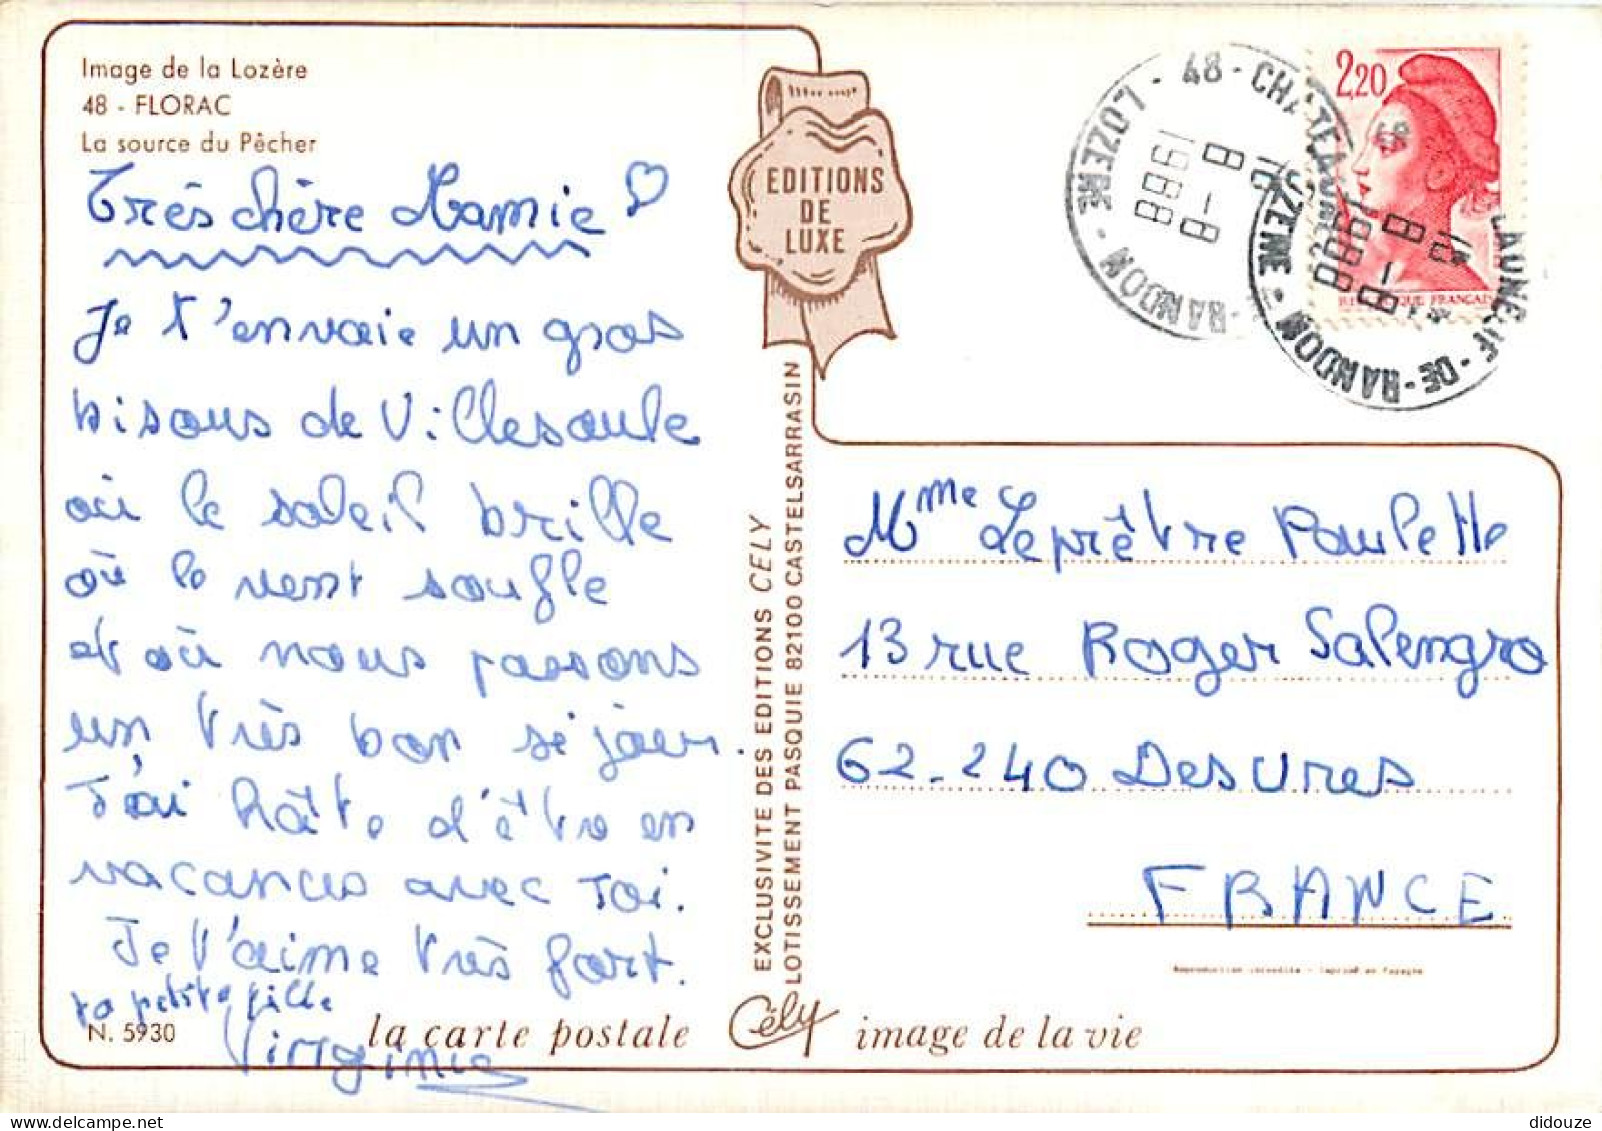 Image de la Lozère
48 - FLORAC
La source du Pêcher
Très chère Mamie
Je t'envoie un gros
bisous de Villesoule
où le soleil brille
où le vent soufle
et où nous passons
un très bon séjour.
J'ai hâte d'être en
vacances avec toi.
Je t'aime très fort.
ta petite fille
Virginie
N. 5930
la carte postale
Cély
image de la vie
EDITIONS
DE
LUXE
EXCLUSIVITE DES EDITIONS CELY
LOTISSEMENT PASQUIE 82100 CASTELSARRASIN
48 - CHATEAUNEUF-DE-RANDON - LOZERE -
16H
8-8
1988
2,20
REPUBLIQUE FRANÇAISE
48 - CHATEAUNEUF-DE-RANDON - LOZERE
16H
8-8
1988
Mme Leprêtre Paulette
13 rue Roger Salengro
62-240 Desvres
FRANCE
Reproduction interdite - Imprimé en Espagne
delcampe.net
didouze